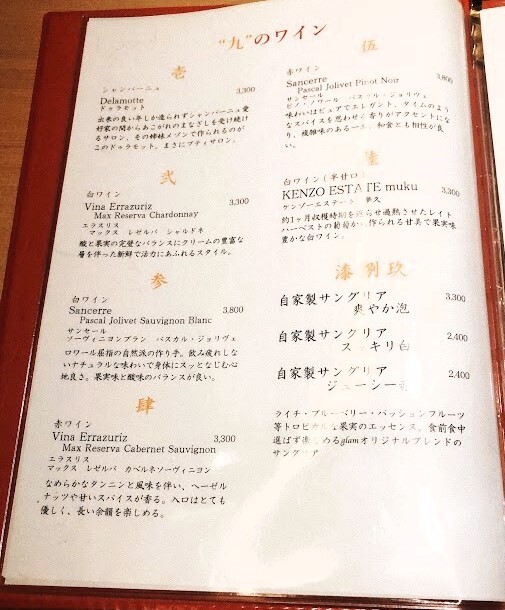 “九”のワイン
壱
シャンパーニュ
Delamotte 3,300
ドゥラモット
出来の良い年しか造られずシャンパーニュ愛
好家の間からあこがれのまなざしを受け続け
るサロン、その姉妹メゾンで作られるのが
このドゥラモット。まさにプティサロン。
弐
白ワイン
Vina Errazuriz 3,300
Max Reserva Chardonnay
エラスリス
マックス レゼルバ シャルドネ
酸と果実の完璧なバランスにクリームの豊富な
層を伴った新鮮で活力にあふれるスタイル。
参
白ワイン
Sancerre 3,800
Pascal Jolivet Sauvignon Blanc
サンセール
ソーヴィニヨンブラン パスカル・ジョリヴェ
ロワール屈指の自然派の作り手。飲み疲れしな
いナチュラルな味わいで身体にスッとなじむ心
地良さ。果実味と酸味のバランスが良い。
肆
赤ワイン
Vina Errazuriz 3,300
Max Reserva Cabernet Sauvignon
エラスリス
マックス レゼルバ カベルネソーヴィニヨン
なめらかなタンニンと風味を伴い、ヘーゼル
ナッツや甘いスパイスが香る。入口はとても
優しく、長い余韻を楽しめる。
伍
赤ワイン
Sancerre 3,800
Pascal Jolivet Pinot Noir
サンセール
ピノ・ノワール パスカル・ジョリヴェ
味わいはピュアでエレガント、タイムのよう
なスパイスを思わせる香りがアクセントにな
り、複雑味のある一 和食とも相性が良
い。
陸
白ワイン(半甘口)
KENZO ESTATE muku 3,300
ケンゾーエステート 夢久
約1ヶ月収穫時期を遅らせ過熟させたレイト
ハーベストの葡萄か 作られる甘美で果実味
豊かな白ワイン。
漆 捌 玖
自家製サングリア 3,300
爽やか泡
自家製サングリア 2,400
スッキリ白
自家製サングリア 2,400
ジューシー
ライチ・ブルーベリー・パッションフルーツ
等トロピカルな果実のエッセンス。食前食中
選ばず楽しめるglamオリジナルブレンドの
サングリア